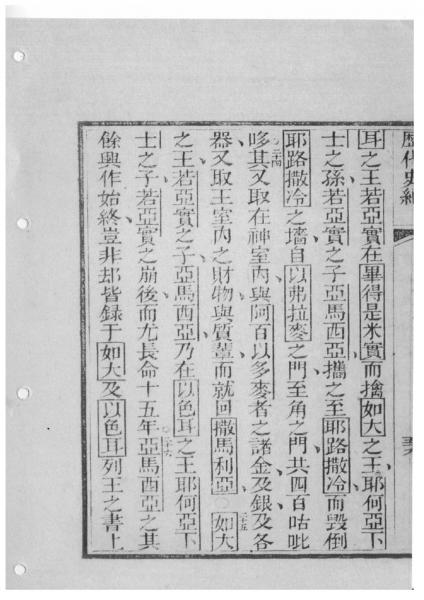 歷代史紀
耳之王若亞實在畢得是米實而擒如大之王耶何亞下
士之孫若亞實之子亞馬西亞攜之至耶路撒冷而毀倒
耶路撒冷之墻自以弗拉麥之門至角之門共四百咕呲
二十四
哆其又取在神室內與阿百以多麥者之諸金及銀及各
器又取王室內之財物與質輩而就回撒馬利亞
二十五
如大
之王若亞實之子亞馬西亞乃在以色耳之王耶何亞下
士之子若亞實之崩後而尤長命十五年
二十六
亞馬西亞之其
餘興作始終豈非却皆録于如大及以色耳列王之書上